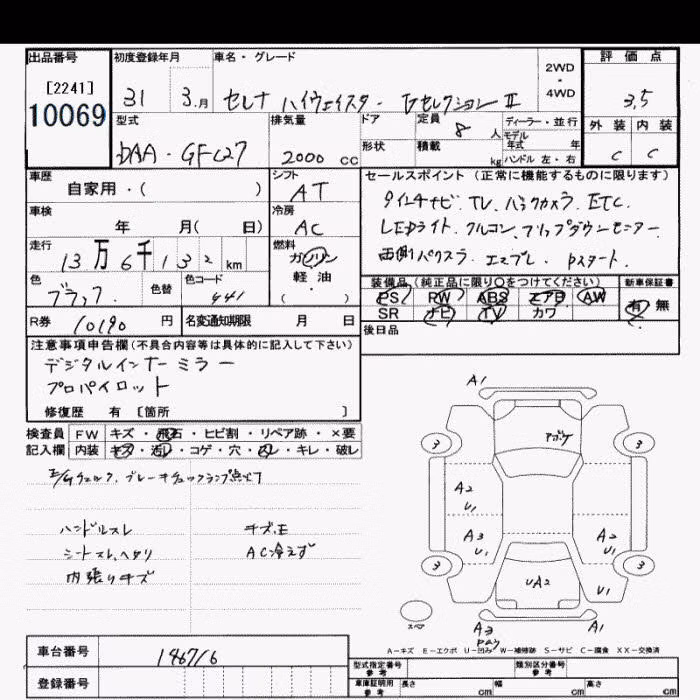 出品番号 初度登録年月 車名・グレード 2WD・4WD 評価点
[2241]
10069
31 3.月 セレナ ハイウェイスター・Gセレクション II 3.5
型式 排気量 ドア 定員 8 人 ディーラー・並行 外装 内装
モデル年式 年
DAA・GFC27 2000 cc 形状 積載 kg ハンドル 左・右 C C
車歴 シフト セールスポイント (正常に機能するものに限ります)
自家用・( ) AT
車検 冷房
年 月( 日) AC LEDライト. クルコン. フリップダウンモニター
走行 燃料
13万6千132 km ガソリン 両側パワスラ. エマブレ. Pスタート.
軽・油
( )
色 色替 色コード 装備品(純正品に限り○をつけてください) 新車保証書
ブラック. 441 PS PW ABS エアB AW 有 無
SR ナビ TV カワ
R券 10190 円 名変通知期限 月 日 後日品
注意事項申告欄(不具合内容等は具体的に記入して下さい)
デジタルインナーミラー
プロパイロット
修復歴 有 [箇所 ]
検査員 FW キズ・飛石・ヒビ割・リペア跡・×要
記入欄 内装 キズ・汚レ・コゲ・穴・スレ・キレ・破レ
E/Gチェック. ブレーキチェックランプ点灯
ハンドルスレ チズ.モ
シートスレ.ヘタリ AC冷えず
内張りキズ
A1
アゴケ
3 3
A2
U1
A3 A2
U1 U1
3 3
UA2 U1
スペア A3 A1
A-キズ E-エクボ U-凹み W-補修跡 S-サビ C-腐食 XX-交換済
車台番号 146716
登録番号
型式指定番号 参考 類別区分番号 参考
車庫証明用 参考 長さ cm 幅 cm 高さ cm